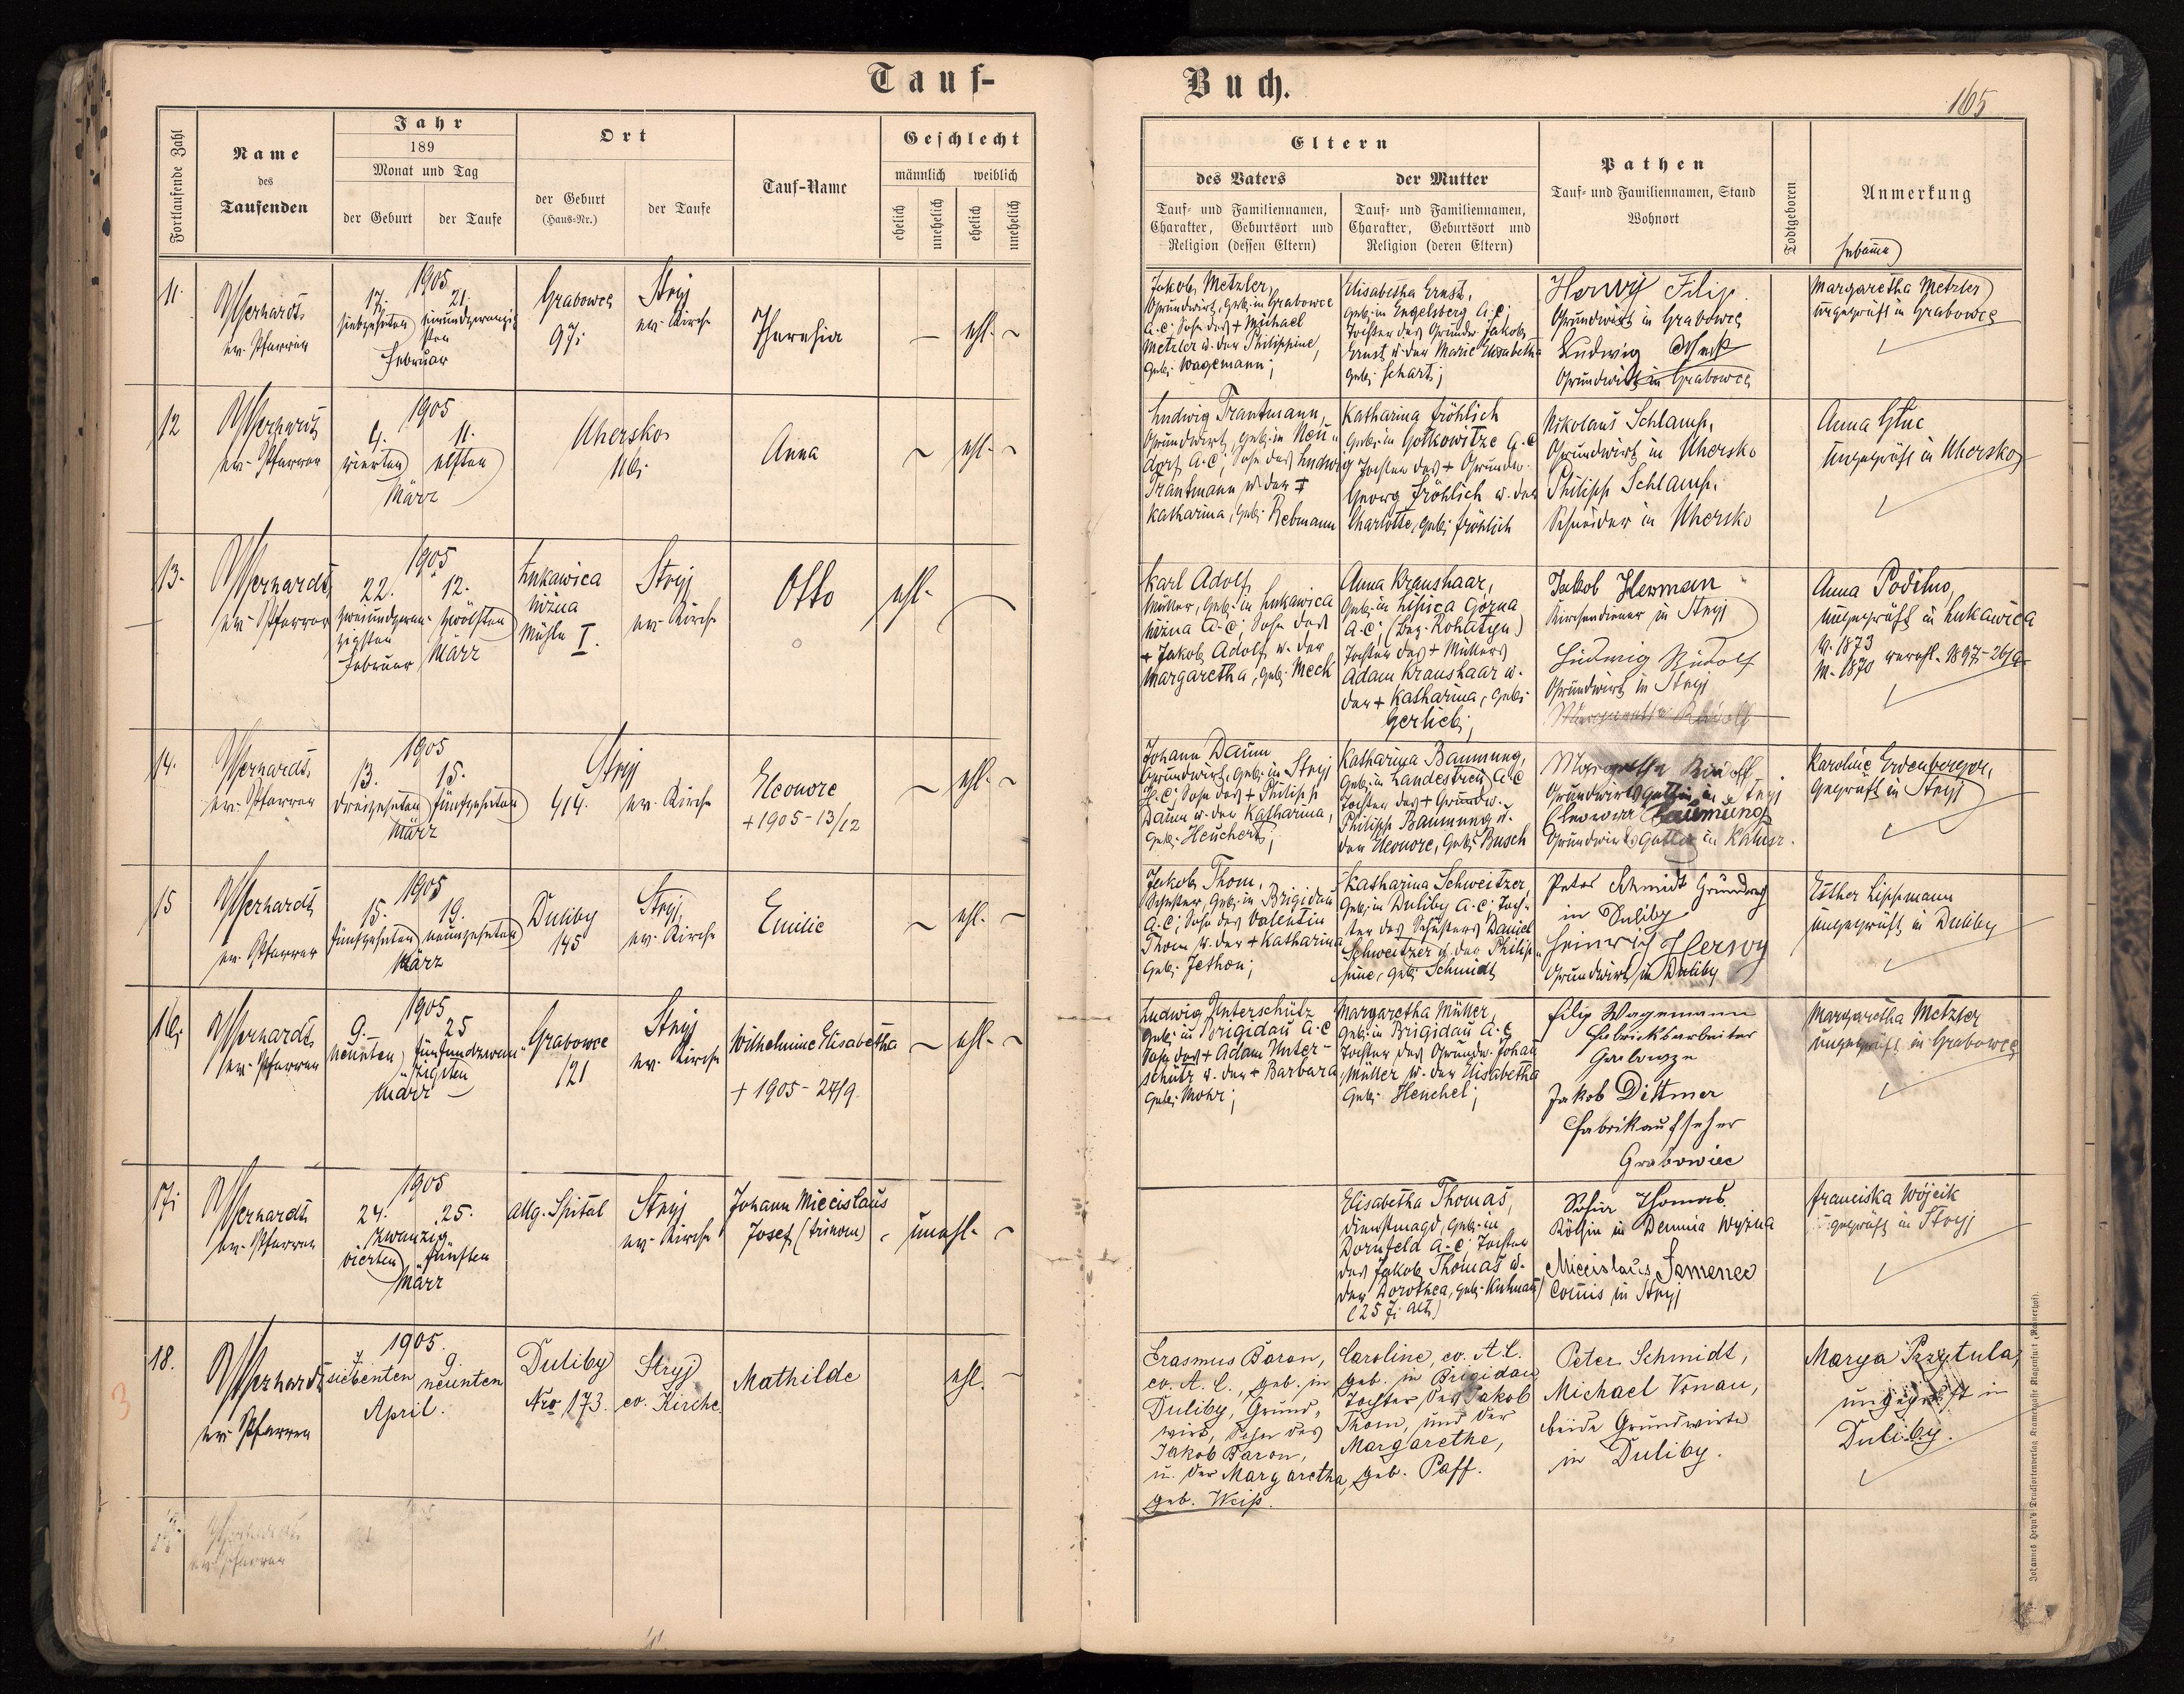 Tauf-
Buch.
165
Fortlaufende Zahl
Name
des
Taufenden
Jahr
189
Monat und Tag
der Geburt
der Taufe
Ort
der Geburt
(Haus-Nr.)
der Taufe
Tauf-Name
Geschlecht
männlich
weiblich
ehelich
unehelich
ehelich
unehelich
Eltern
des Vaters
Tauf- und Familiennamen,
Charakter, Geburtsort und
Religion (dessen Eltern)
der Mutter
Tauf- und Familiennamen,
Charakter, Geburtsort und
Religion (deren Eltern)
Pathen
Tauf- und Familiennamen, Stand
Wohnort
Todtgeboren
Anmerkung
Hebamme
11.
ev. Pfarrer
1905
17. 21.
siebzehnten einundzwanzig
sten
Februar
Grabowce
97.
Stryj
ev. Kirche
Theresia
ehl.
Jakob Metzler,
Grundwirt, geb. in Grabowce
A.C; Sohn des + Michael
Metzler u. der Philippine,
geb. Wagemann;
Elisabetha Ernst,
geb. in Engelsberg A.C;
Tochter des Grundw. Jakob
Ernst u. der Marie Elisabetha
geb. Schart;
Filip
Grundwirt in Grabowce
Ludwig
Grundwirt in Grabowce
Margaretha Metzler
ungeprüft in Grabowce
12
ev. Pfarrer
1905
4. 11.
vierten elften
März
Uhersko
116.
Anna
ehl.
Ludwig Trautmann,
Grundwirt, geb. in Neu-
dorf A.C; Sohn des Ludwig
Trautmann u. der +
Katharina, geb. Rebmann
Katharina Fröhlich
geb. in Gotkowitze A.C
Tochter des + Grundw.
Georg Fröhlich u. der
Charlotte, geb. Fröhlich
Nikolaus Schlamp,
Grundwirt in Uhersko
Philipp Schlamp,
Schneider in Uhersko
Anna Gluc
ungeprüft in Uhersko
13.
ev. Pfarrer
1905
22. 12.
zweiundzwan- zwölften
zigsten
Februar März
Lukawica
niżna
Mühle I.
Stryj
ev. Kirche
Otto
ehl.
Karl Adolf,
Müller, geb. in Lukawica
niżna A.C; Sohn des
+ Jakob Adolf u. der
Margaretha, geb. Meck
Anna Kraushaar,
geb. in Lisica Górna
A.C; (Bez. Rohatyn)
Tochter des + Müllers
Adam Kraushaar u.
der + Katharina, geb.
Gerlieb;
Jakob Herman
Kirchendiener in Stryj
Ludwig Rudolf
Grundwirt in Stryj
Anna
ungeprüft in Lukawica
V. 1873
M. 1870 verehl. 1897-26/9.
14.
ev. Pfarrer
1905
13. 15.
dreizehnten fünfzehnten
März
Stryj
414.
ev. Kirche
Eleonore
+ 1905-13/12
ehl.
Johann Daum
Grundwirt, geb. in Stryj
A.C; Sohn des + Philipp
Daum u. der Katharina,
geb. Heuchert;
Katharina Baumung,
geb. in Landestreu A.C
Tochter des + Grundw.
Philipp Baumung u.
der Eleonore, geb. Busch
Margaretha Rudolf
Grundwirtsgattin in Stryj
Eleonora Baumung
Grundwirtsgattin in Kałusz.
Karoline Erdenberger,
geprüft in Stryj
15
ev. Pfarrer
1905
15. 19.
fünfzehnten neunzehnten
März
Duliby
145
Stryj
ev. Kirche
Emilie
ehl.
Jakob Thom,
Schuster, geb. in Brigidau
A.C; Sohn des Valentin
Thom u. der + Katharina
geb. Jethon;
Katharina Schweitzer,
geb. in Duliby A.C; Toch-
ter des Schusters Daniel
Schweitzer u. der Philip-
pine, geb. Schmidt
Peter Schmidt
in Duliby
Heinrich
Grundwirt in Duliby
Esther Lippmann
ungeprüft in Duliby
16.
ev. Pfarrer
1905
9. 25
neunten fünfundzwan-
zigsten
März
Grabowce
121
Stryj
ev. Kirche
Wilhelmine Elisabetha
+ 1905-24/9
ehl.
Ludwig Unterschütz
geb. in Brigidau A.C
Sohn des + Adam Unter-
schütz u. der + Barbara
geb. Mohr;
Margaretha Müller,
geb. in Brigidau A.C,
Tochter des Grundw. Johan
Müller u. der Elisabetha
geb. Henchel;
Filip Wagemann
Fabrickarbeiter
Jakob Dittmer
Fabrikaufseher
Grabowiec
Margaretha Metzler
ungeprüft in Grabowce
17.
ev. Pfarrer
1905
24. 25.
zwanzig
vierten fünften
März
Allg. Spital
Stryj
ev. Kirche
Johann Miecislaus
Josef (trinom)
unehl.
Elisabetha Thomas,
Dienstmagd, geb. in
Dornfeld A.C; Tochter
des Jakob Thomas u.
der Dorothea, geb. Kuhman
(25 J. alt)
Sofia Thomas
Köchin in Demnia Wyżna
Miecislaus
Comis in Stryj
Franciska Wójcik
geprüft in Stryj
18.
ev. Pfarrer
1905.
7 9
siebenten neunten
April.
Duliby
Nro 173.
Stryj
ev. Kirche.
Mathilde
ehl.
Erasmus Baron,
ev. A.C., geb. in
Duliby, Grund-
wirt, Sohn des
Jakob Baron,
u. der Margaretha,
geb. Weiß.
Caroline, ev. A.C.
geb. in Brigidau
Tochter des Jakob
Thom, und der
Margarethe,
geb. Paff.
Peter Schmidt,
Michael Vonau,
beide Grundwirte
in Duliby.
Marya Przytula,
ungeprüft in
Duliby.
3
ev. Pfarrer
Johannes Heyn's Drucksortenverlag Kramergasse Klagenfurt (Rainerhof).